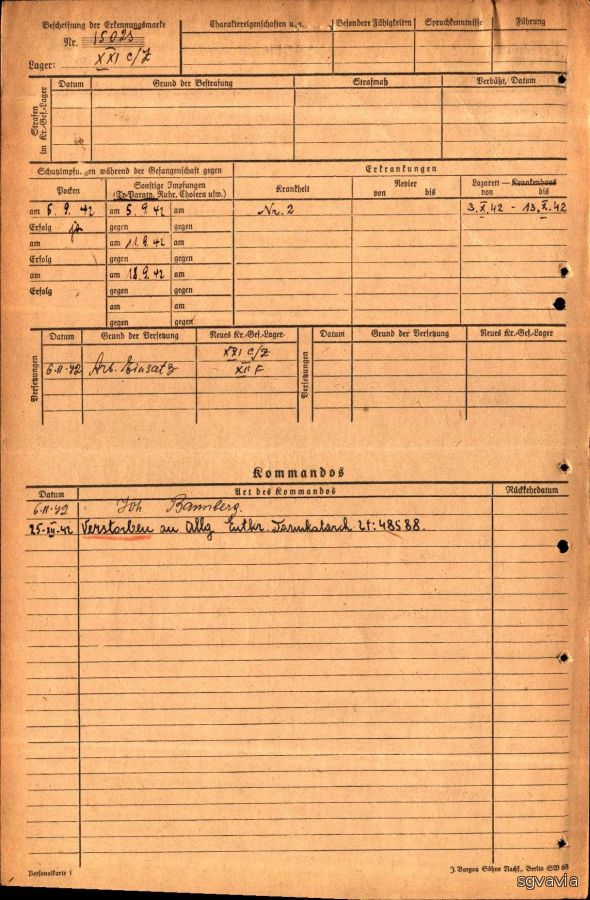 Beschriftung der Erkennungsmarke
Nr. 15025
XXI C/Z
Lager:
Charaktereigenschaften
Besondere Fähigkeiten
Sprachkenntnisse
Führung
Strafen im Kr.-Gef.-Lager
Datum Grund der Bestrafung Strafmaß Verbüßt, Datum
Schutzimpfungen während der Gefangenschaft gegen
Erkrankungen
Pocken
Sonstige Impfungen (Ty.Paratyp. Ruhr, Cholera usw.)
Krankheit
Revier von bis
Lazarett — Krankenhaus von bis
am 5.9.42 am 5.9.42 am Nr. 2 3.X.42 - 13.X.42
Erfolg ja gegen gegen
am am 11.9.42 am
Erfolg gegen gegen
am am 18.9.42 am
Erfolg gegen gegen
am am
gegen gegen
Versetzungen
Datum Grund der Versetzung Neues Kr.-Gef.-Lager
XXI C/Z
6.11.42 Arb. Einsatz XII F
Versetzungen
Datum Grund der Versetzung Neues Kr.-Gef.-Lager
Kommandos
Datum Art des Kommandos Rückkehrdatum
6.11.42
25.XII.42 Verstorben an Allg. Entkr. Darmkatarrh Lt: 48588.
Personalkarte 1
J. Bargou Söhne Nachf., Berlin SW 68
sgvavia